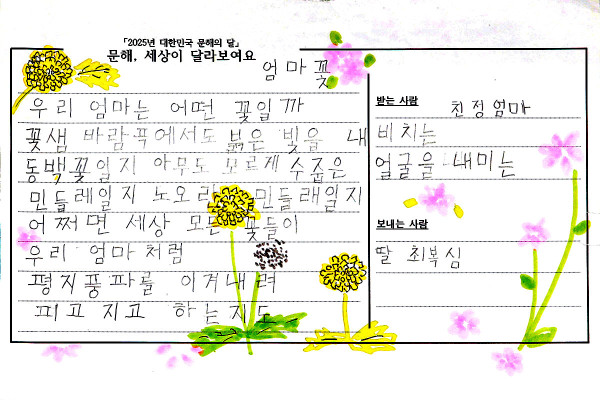 「2025년 대한민국 문해의 달」
문해, 세상이 달라보여요
엄마꽃
우리 엄마는 어떤 꽃일까
꽃샘 바람폭에서도 붉은 빛을 내
동백꽃일지 아무도 모르게 수줍은
민들레일지 노오란 민들래일지
어쩌면 세상 모든 꽃들이
우리 엄마처럼
평지풍파를 이겨내려
피고 지고 하는지도
받는 사람
친정엄마
비치는
얼굴을 내미는
보내는 사람
딸 최복심